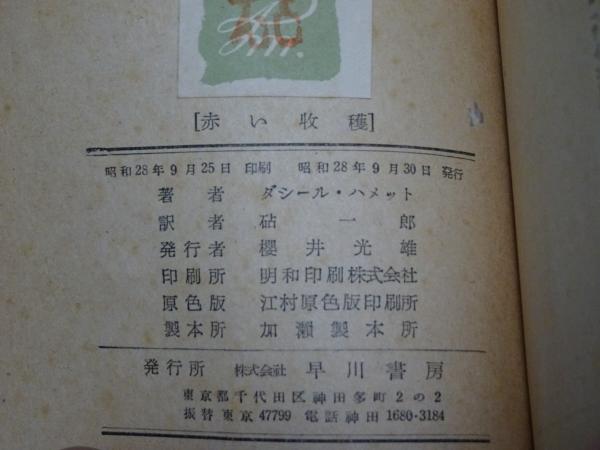 [赤い収穫]
昭和28年9月25日 印刷 昭和28年9月30日 発行
著者 ダシール・ハメット
訳者 砧一郎
発行者 櫻井光雄
印刷所 明和印刷株式会社
原色版 江村原色版印刷所
製本所 加瀬製本所
発行所 株式会社 早川書房
東京都千代田区神田多町2の2
振替東京47799 電話神田1680・3184